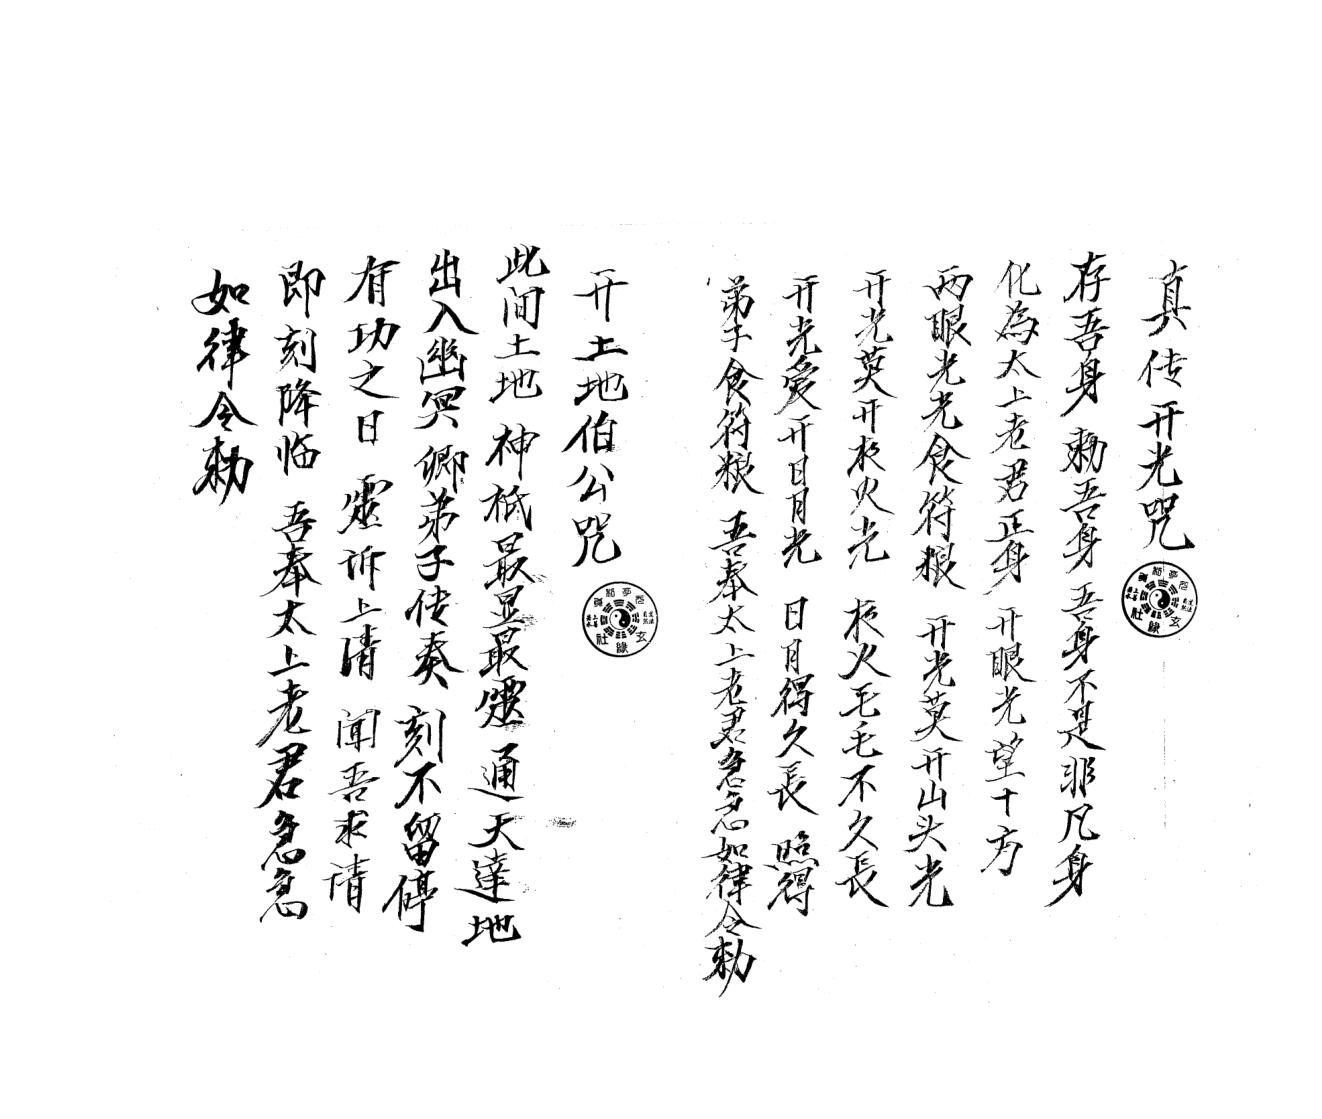 真传开光咒
存吾身 勅吾身 吾身不是非凡身
化為太上老君正身 开眼光望十方
两眼光光食符粮 开光莫开山头光
开光莫开松火光 松火毛毛不久長
开光爱开日月光 日月得久長 照得
弟子食符粮 吾奉太上老君急急如律令勅
开土地伯公咒
此间土地 神祇最显最灵 通天達地
出入幽冥 卿弟子传奏 刻不留停
有功之日 灵诉上清 闻吾求请
即刻降临 吾奉太上老君急急
如律令勅